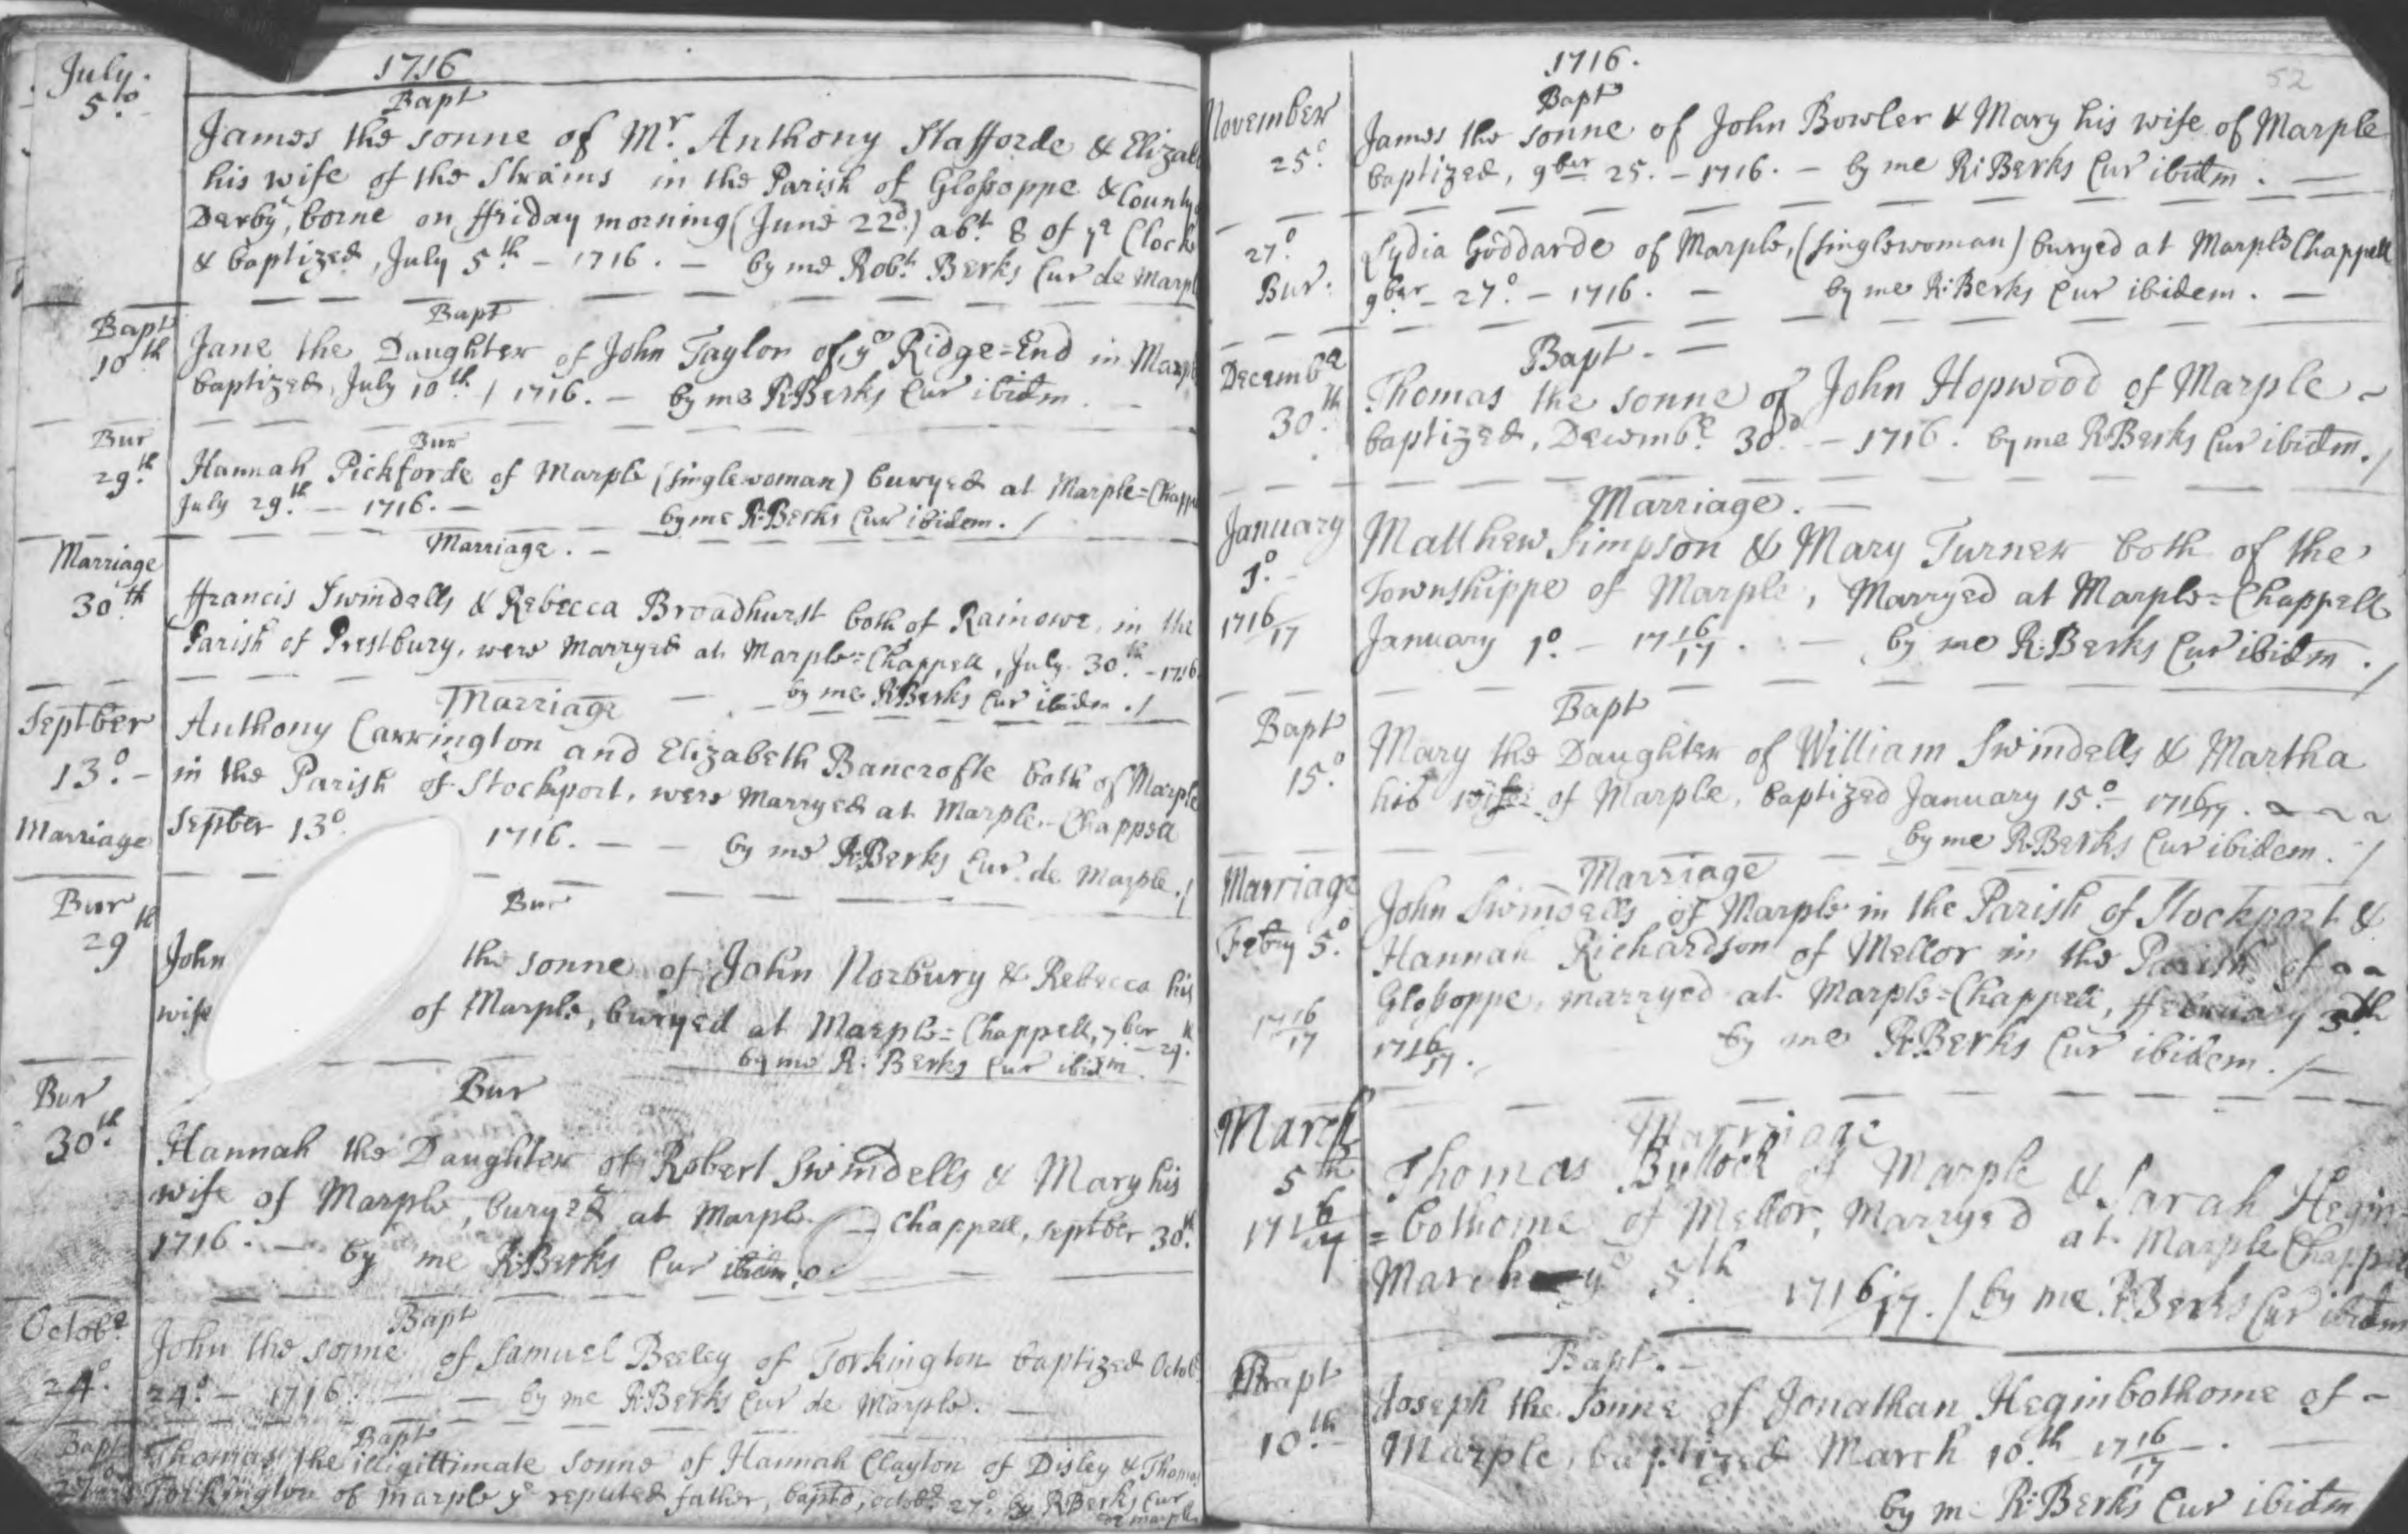 1716
July.
5.to
Bapt
James the sonne of Mr. Anthony Stafforde & Elizab
his wife of the Strains in the Parish of Glossoppe & County
Derby, borne on ffriday morning (June 22d.) abt. 8 of ye Clock
& baptized, July 5th - 1716. - by me Robt. Berks Cur de Marpl
Bapt
10th
Bapt
Jane the Daughter of John Taylor of ye Ridge=End in Marpl
baptized, July 10th / 1716. - by me R:Berks Cur ibidm. -
Bur
29th.
Bur
Hannah Pickforde of Marple (singlewoman) buryed at Marple=Chapp
July 29th. - 1716. - by me R:Berks Cur ibidem. /
Marriage
30th.
Marriage. -
ffrancis Swindells & Rebecca Broadhurst both of Rainowe, in the
Parish of Prestbury, were Marryed at Marple=Chappell, July 30th. - 1716
by me R:Berks Cur ibidm. /
Septber
13.o -
Marriage
Marriage
Anthony Carrington and Elizabeth Bancrofte both of Marple
in the Parish of Stockport, were Marryed at Marple-Chappell
Septber 13o. 1716. - - by me R:Berks Cur. de Marple. /
Bur
29th
Bur
John the sonne of John Norbury & Rebecca his
wife of Marple, buryed at Marple=Chappell, 7ber - 29.th
by me R: Berks Cur ibidm
Bur
30th.
Bur
Hannah the Daughter of Robert Swindells & Mary his
wife of Marple, buryed at Marple - Chappell, septber 30.th
1716. - by me R:Berks Cur ibidm.
Octobe.
24o.
Bapt
John the sonne of Samuel Beeley of Torkington baptized Octob
24o. - 1716. - - by me R:Berks Cur de Marple. -
Bapt
27o
Bapt
Thomas the illigittimate sonne of Hannah Clayton of Disley & Thomas
Torkington of Marple ye reputed father, baptd, octobe 27o. by R:Berks Cur
de marple
1716.
52
November
25.o
Bapt
James the sonne of John Bowler & Mary his wife of Marple
baptized, 9ber 25. - 1716. - by me R:Berks Cur ibidm. -
27.o
Bur.
Lydia Goddarde of Marple, (singlewoman) buryed at Marple Chappell
9ber - 27.o - 1716. - by me R:Berks Cur ibidem. -
Decembe
30.th
Bapt. -
Thomas the sonne of John Hopwood of Marple -
baptized, Decembe. 30o. - 1716. by me R:Berks Cur ibidm. /
January
1.o -
1716/17
Marriage. -
Matthew Simpson & Mary Turner both of the
Townshippe of Marple, Marryed at Marple=Chappell
January 1.o - 1716/17. - by me R:Berks Cur ibidm. /
Bapt
15.o
Bapt
Mary the Daughter of William Swindells & Martha
his wife of Marple, baptized January 15.o - 1716/17. ~ ~ ~
by me R:Berks Cur ibidem. /
Marriage
Febry 5.o
1716/17
Marriage
John Swindells of Marple in the Parish of Stockport &
Hannah Richardson of Mellor in the Parish of
Glossoppe, marryed at Marple=Chappell, ffebruary 5th.
1716/17. by me R:Berks Cur ibidem. /-
March
5th
1716/17
Marriage
Thomas Bullock of Marple & Sarah Hegin
=bothome of Mellor, Marryed at Marple Chappell
March ye 5.th 1716/17. / by me R:Berks Cur ibidm
Bapt
10.th -
Bapt. -
Joseph the sonne of Jonathan Heginbothome of -
Marple, baptized March 10.th 1716/17. -
by me R:Berks Cur ibidm